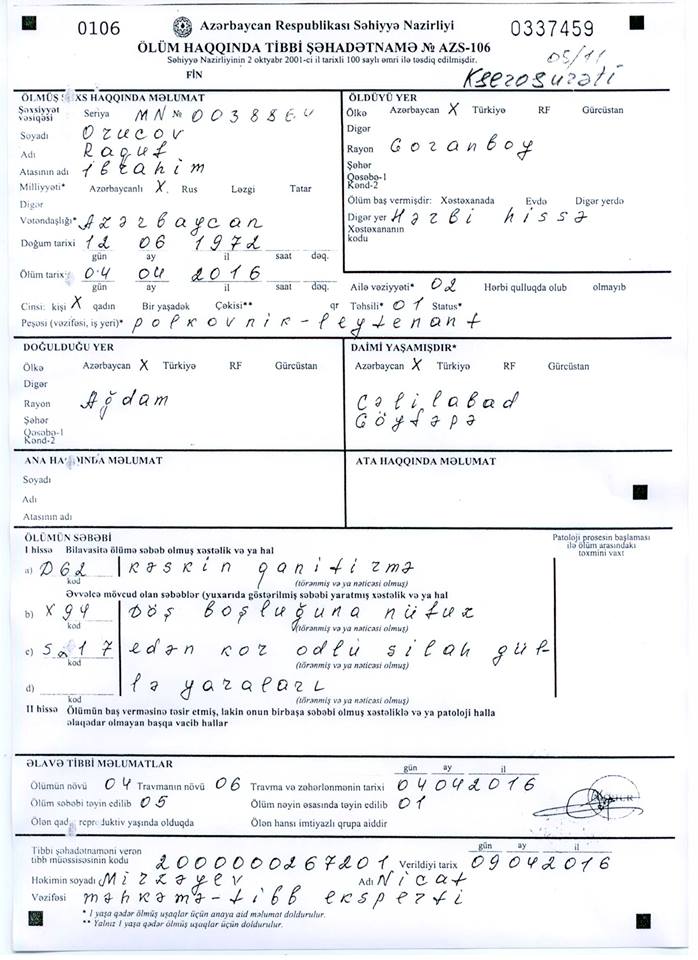 0106 Azərbaycan Respublikası Səhiyyə Nazirliyi 0337459
ÖLÜM HAQQINDA TİBBİ ŞƏHADƏTNAMƏ № AZS-106
Səhiyyə Nazirliyinin 2 oktyabr 2001-ci il tarixli 100 saylı əmri ilə təsdiq edilmişdir.
05/11
FİN
Kserosurəti
ÖLMÜŞ ŞƏXS HAQQINDA MƏLUMAT
Şəxsiyyət vəsiqəsi Seriya MN № 003886
Soyadı Orucov
Adı Raquf
Atasının adı İbrahim
Milliyyəti* Azərbaycanlı X Rus Ləzgi Tatar
Digər
Vətəndaşlığı* Azərbaycan
Doğum tarixi 12 06 1972
gün ay il saat dəq.
Ölüm tarixi 04 04 2016
gün ay il saat dəq.
Cinsi: kişi X qadın Bir yaşadək Çəkisi** qr Təhsili* 01 Status*
Peşəsi (vəzifəsi, iş yeri)* polkovnik-leytenant
ÖLDÜYÜ YER
Ölkə Azərbaycan X Türkiyə RF Gürcüstan
Digər
Rayon Goranboy
Şəhər
Qəsəbə-1
Kənd-2
Ölüm baş vermişdir: Xəstəxanada Evdə Digər yerdə
Digər yer Hərbi hissə
Xəstəxananın
kodu
Ailə vəziyyəti* 02 Hərbi qulluqda olub olmayıb
DOĞULDUĞU YER
Ölkə Azərbaycan X Türkiyə RF Gürcüstan
Digər
Rayon Ağdam
Şəhər
Qəsəbə-1
Kənd-2
DAİMİ YAŞAMIŞDIR*
Azərbaycan X Türkiyə RF Gürcüstan
Cəlilabad
Göytəpə
ANA HAQQINDA MƏLUMAT
Soyadı
Adı
Atasının adı
ATA HAQQINDA MƏLUMAT
ÖLÜMÜN SƏBƏBİ
Patoloji prosesin başlaması
ilə ölüm arasındakı
təxmini vaxt
I hissə Bilavasitə ölümə səbəb olmuş xəstəlik və ya hal
a) D62 kəskin qanitirmə
kod (törənmiş və ya nəticəsi olmuş)
Əvvəlcə mövcud olan səbəblər (yuxarıda göstərilmiş səbəbi yaratmış xəstəlik və ya hal
b) X94 Döş boşluğuna nüfuz
kod (törənmiş və ya nəticəsi olmuş)
c) S217 edən kor odlu silah gül-
kod (törənmiş və ya nəticəsi olmuş)
d) lə yaraları
kod (törənmiş və ya nəticəsi olmuş)
II hissə Ölümün baş verməsinə təsir etmiş, lakin onun birbaşa səbəbi olmuş xəstəliklə və ya patoloji halla
əlaqədar olmayan başqa vacib hallar
ƏLAVƏ TİBBİ MƏLUMATLAR
gün ay il
Ölümün növü 04 Travmanın növü 06 Travma və zəhərlənmənin tarixi 04042016
Ölüm səbəbi təyin edilib 05 Ölüm nəyin əsasında təyin edilib 01
Ölən qadın reproduktiv yaşında olduqda Ölən hansı imtiyazlı qrupa aiddir
gün ay il
Tibbi şəhadətnaməni verən
tibb müəssisəsinin kodu 200000267201 Verildiyi tarix 09042016
Həkimin soyadı Mirzəyev Adı Nicat
Vəzifəsi məhkəmə-tibb eksperti
* 1 yaşa qədər ölmüş uşaqlar üçün anaya aid məlumat doldurulur.
** Yalnız 1 yaşa qədər ölmüş uşaqlar üçün doldurulur.